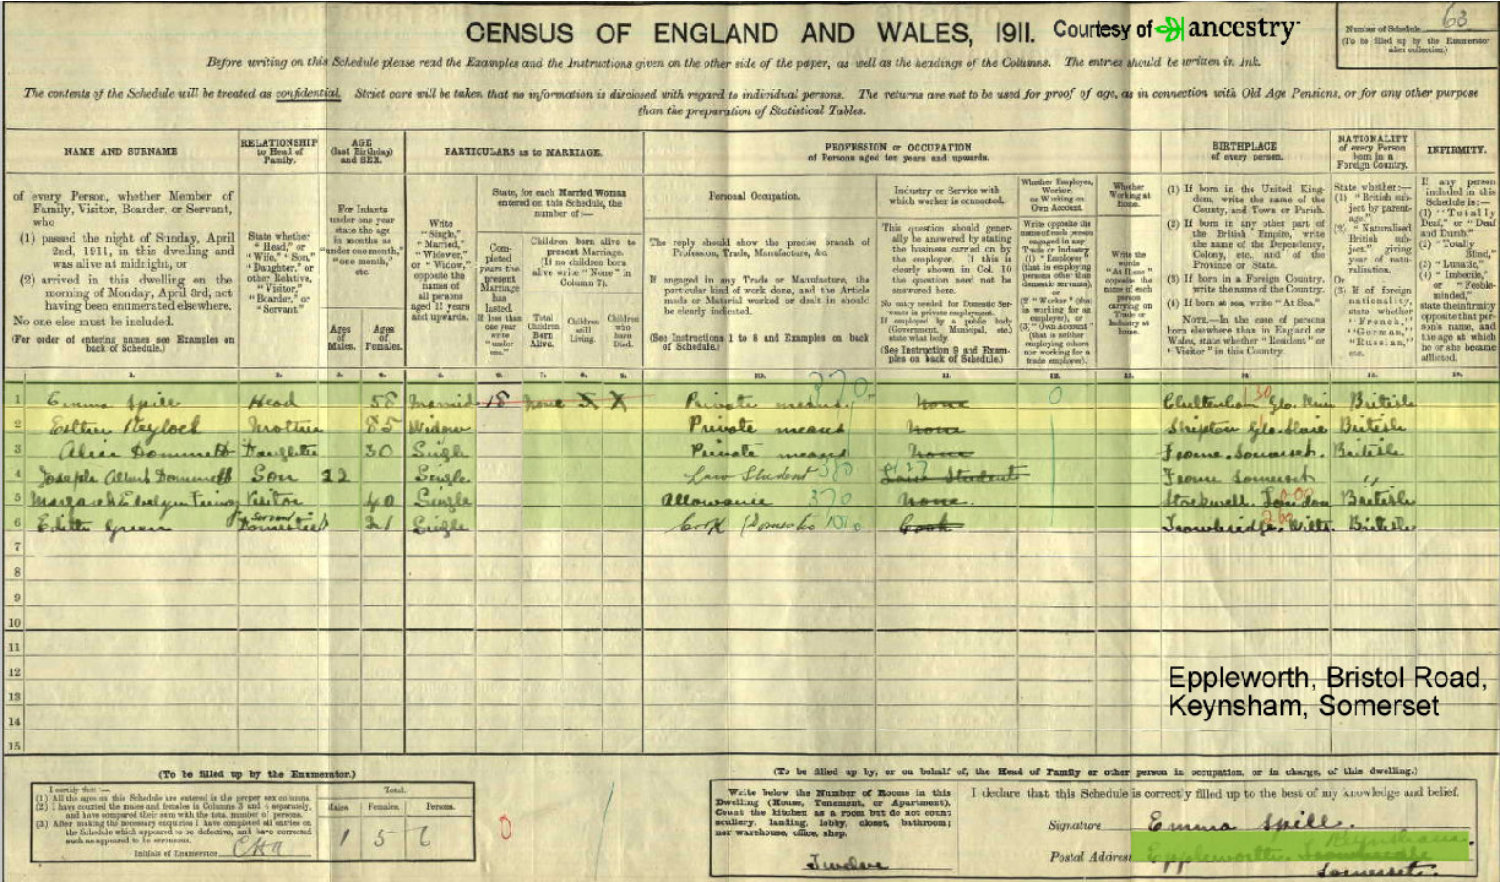 CENSUS OF ENGLAND AND WALES, 1911. Courtesy of ancestry
Number of Schedule 63
(To be filled up by the Enumerator after collection.)
Before writing on this Schedule please read the Examples and the Instructions given on the other side of the paper, as well as the headings of the Columns. The entries should be written in Ink.
The contents of the Schedule will be treated as confidential. Strict care will be taken that no information is disclosed with regard to individual persons. The returns are not to be used for proof of age, as in connection with Old Age Pensions, or for any other purpose
than the preparation of Statistical Tables.
NAME AND SURNAME
RELATIONSHIP
to Head of
Family.
AGE
(last Birthday)
and SEX.
PARTICULARS as to MARRIAGE.
PROFESSION or OCCUPATION
of Persons aged ten years and upwards.
BIRTHPLACE
of every person.
NATIONALITY
of every Person
born in a
Foreign Country.
INFIRMITY.
of every Person, whether Member of
Family, Visitor, Boarder, or Servant,
who
(1) passed the night of Sunday, April
2nd, 1911, in this dwelling and
was alive at midnight, or
(2) arrived in this dwelling on the
morning of Monday, April 3rd, not
having been enumerated elsewhere.
No one else must be included.
(For order of entering names see Examples on
back of Schedule.)
State whether
"Head," or
"Wife," "Son,"
"Daughter," or
other Relative,
"Visitor,"
"Boarder," or
"Servant"
For Infants
under one year
state the age
in months as
"under one month,"
"one month,"
etc.
Ages
of
Males.
Ages
of
Females.
Write
"Single,"
"Married,"
"Widower,"
or "Widow,"
opposite the
names of
all persons
aged 15 years
and upwards.
State, for each Married Woman
entered on this Schedule, the
number of:—
Completed
years the
present
Marriage
has
lasted.
If less than
one year
write
"under
one."
Children born alive to
present Marriage.
(If no children born
alive write "None" in
Column 7).
Total
Children
Born
Alive.
Children
still
Living.
Children
who
have
Died.
Personal Occupation.
The reply should show the precise branch of
Profession, Trade, Manufacture, &c.
If engaged in any Trade or Manufacture, the
particular kind of work done, and the Article
made or Material worked or dealt in should
be clearly indicated.
(See Instructions 1 to 8 and Examples on back
of Schedule.)
Industry or Service with
which worker is connected.
This question should generally
be answered by stating
the business carried on by
the employer. If this is
clearly shown in Col. 10
the question need not be
answered here.
No entry needed for Domestic Servants
in private employment.
If employed by a public body
(Government, Municipal, etc.)
state what body.
(See Instruction 9 and Examples
on back of Schedule.)
Whether Employer,
Worker,
or Working on
Own Account.
Whether
Working at
home.
Write the
words
"At Home"
opposite the
name of each
person
carrying on
Trade or
Industry at
home.
(1) If born in the United Kingdom,
write the name of the
County, and Town or Parish.
(2) If born in any other part of
the British Empire, write
the name of the Dependency,
Colony, etc. and of the
Province or State.
(3) If born in a Foreign Country,
write the name of the Country.
(4) If born at sea, write "At Sea."
NOTE.—In the case of persons
born elsewhere than in England or
Wales, state whether "Resident" or
"Visitor" in this Country.
1 Emma Spill Head 58 Married 18 none Private means 370 none 0 Cheltenham British
2 Mother 85 Widow Private means none British
3 Alice Dommett Daughter 30 Single Private means none Frome Somerset British
4 Joseph Albert Dommett Son 22 Single Law Student Law Student Frome Somerset "
5 Visitor 40 Single Allowance 370 none Stockwell London British
6 Edith Green Servant Domestic 21 Single Cook (Domestic) Cook Trowbridge Wilts British
7
8
9
10
11
12
13
14
15
Eppleworth, Bristol Road,
Keynsham, Somerset
(To be filled up by the Enumerator.)
I certify that:—
(1) All the ages on this Schedule are entered in the proper sex columns.
(2) I have counted the males and females in Columns 3 and 4 separately,
and have compared their sum with the total number of persons.
(3) After making the necessary enquiries I have completed all entries on
the Schedule which appeared to be defective, and have corrected
such as appeared to be erroneous.
Initials of Enumerator
Total.
Males Females. Persons.
1 5 6
(To be filled up by, or on behalf of, the Head of Family or other person in occupation, or in charge, of this dwelling.)
Write below the Number of Rooms in this
Dwelling (House, Tenement, or Apartment).
Count the kitchen as a room but do not count
scullery, landing, lobby, closet, bathroom;
nor warehouse, office, shop.
Twelve
I declare that this Schedule is correctly filled up to the best of my knowledge and belief.
Signature Emma Spill.
Postal Address Eppleworth Keynsham
Somerset.